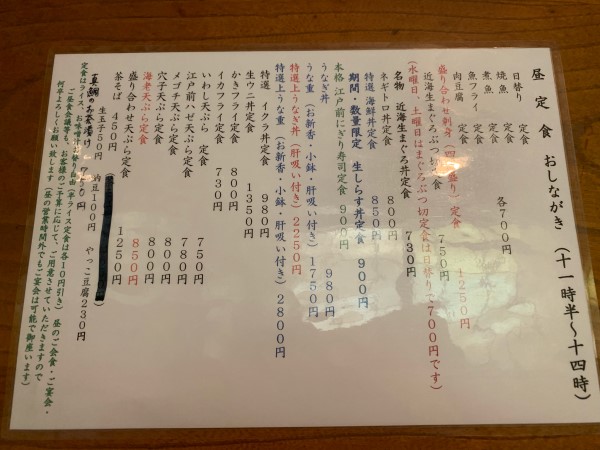 昼定食 おしながき (十一時半~十四時)
日替り 定食
焼魚 定食
煮魚 定食
魚フライ 定食
肉豆腐 定食
各700円
盛り合わせ刺身(四点盛り)定食 1250円
近海生まぐろぶつ切定食 750円
(水曜日、土曜日はまぐろぶつ切定食は日替りで700円です)
名物 近海生まぐろ丼定食 730円
ネギトロ丼定食 800円
特選 海鮮丼定食 850円
期間・数量限定 生しらす丼定食 900円
本格 江戸前にぎり寿司定食 900円
うなぎ丼 980円
うな重(お新香・小鉢・肝吸い付き) 1750円
特選上うなぎ丼(肝吸い付き) 2250円
特選上うな重(お新香・小鉢・肝吸い付き) 2800円
特選 イクラ丼定食 980円
生ウニ丼定食 1350円
かきフライ定食 800円
イカフライ定食 730円
いわし天ぷら 定食 750円
江戸前ハゼ天ぷら定食 780円
メゴチ天ぷら定食 800円
穴子天ぷら定食 800円
海老天ぷら定食 850円
盛り合わせ天ぷら定食 1250円
茶そば 450円
生玉子50円 納豆100円 やっこ豆腐230円
真鯛のお茶漬け 750円
定食はライス、お味噌汁お替り自由(半ライス定食は各10円引き)
昼のご会食・ご宴会・ご昼食会議等も、お客様のご予算に応じて、ご用意させていただきますので
何卒よろしくお願い致します(昼の営業時間外でもご宴会は可能で御座います)